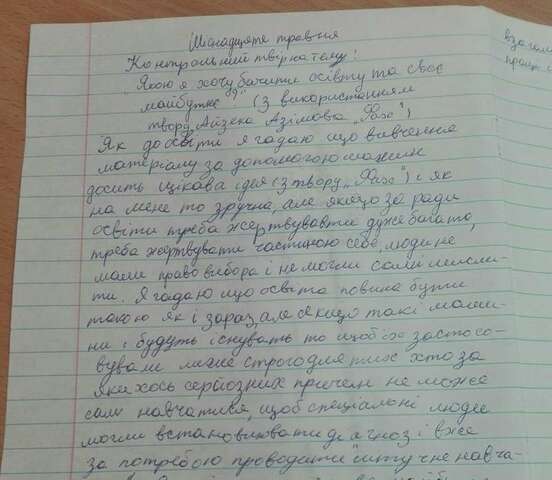 Шіснадцяте травня
Контрольний твір на тему:
"Якою я хочу бачити освіту та своє
майбутнє"? (з використанням
твору Айзека Азімова "Фах")
Як до освіти я гадаю що вивчення
матеріалу за допомогою машин
досить цікава ідея (з твору "Фах") і як
на мене то зручна, але якщо за ради
освіти треба жертвувати дуже багато,
треба жертвувати частиною себе, люди не
мали право вибора і не могли самі мисли-
ти. Я гадаю що освіта повина бути
такою як і зараз, але якщо такі маши-
ни і будуть існувать то щоб їх застосо-
вували лише строго для тих хто за
якихось серйозних причин не може
сам навчатися, щоб спеціальні люди
могли встановлювати діагноз і вже
за потребою проводити штучне навча-
взагалі